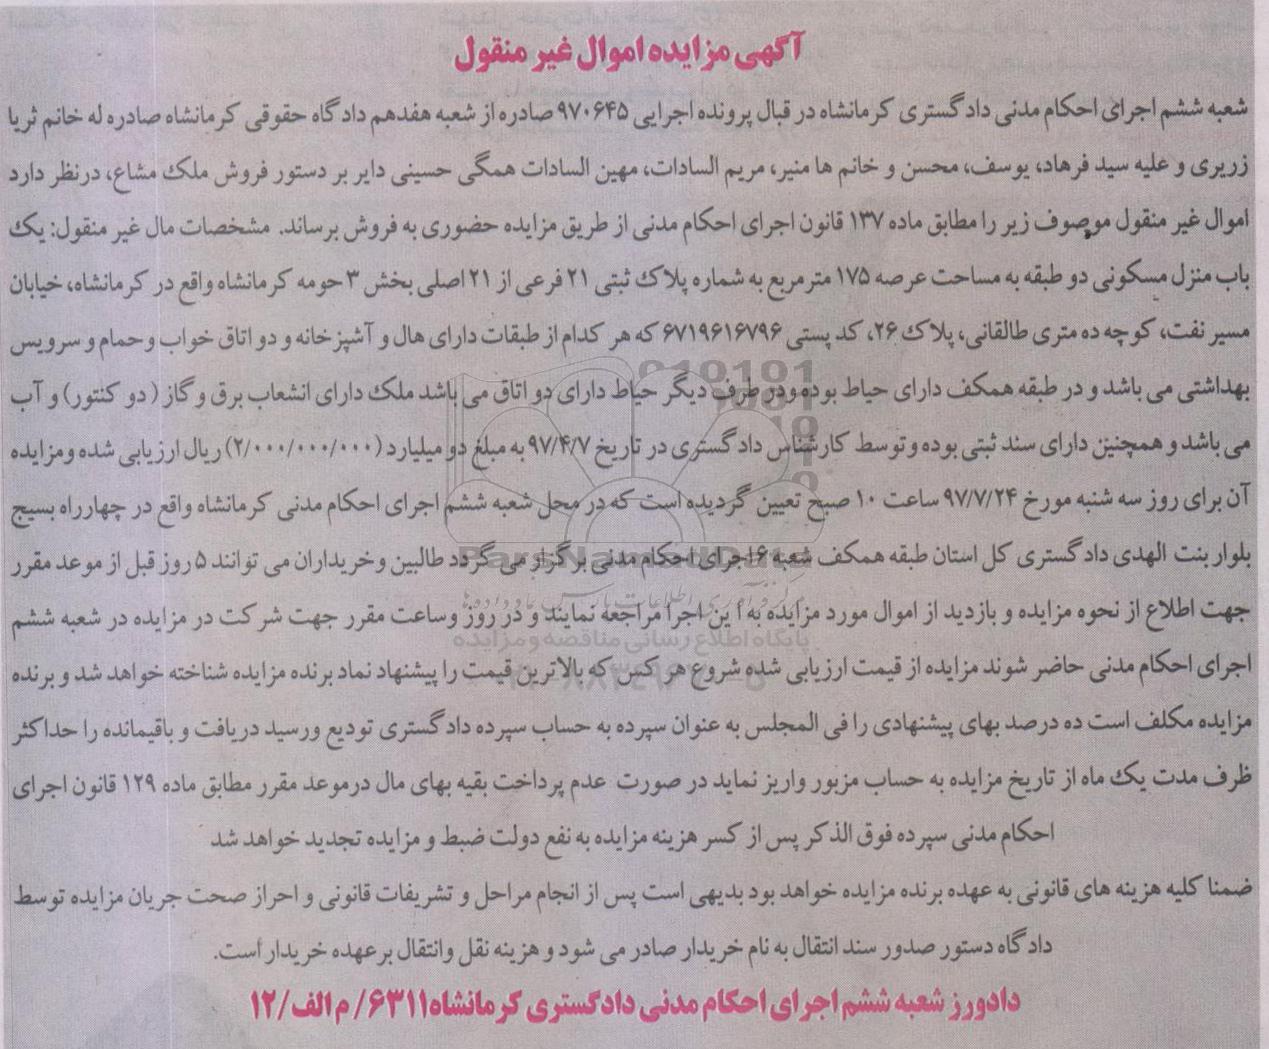 آگهی مزایده اموال غیر منقول
شعبه ششم اجرای احکام مدنی دادگستری کرمانشاه در قبال پرونده اجرایی ۹۷۰۶۴۵ صادره از شعبه هفدهم دادگاه حقوقی کرمانشاه صادره له خانم ثریا
زریری و علیه سید فرهاد، یوسف، محسن و خانم ها منیر، مریم السادات، مهین السادات همگی حسینی دایر بر دستور فروش ملک مشاع، درنظر دارد
اموال غیر منقول موصوف زیر را مطابق ماده ۱۳۷ قانون اجرای احکام مدنی از طریق مزایده حضوری به فروش برساند. مشخصات مال غیر منقول: یک
باب منزل مسکونی دو طبقه به مساحت عرصه ۱۷۵ مترمربع به شماره پلاک ثبتی ۲۱ فرعی از ۲۱ اصلی بخش ۳ حومه کرمانشاه واقع در کرمانشاه، خیابان
مسیر نفت، کوچه ده متری طالقانی، پلاک ۲۶، کد پستی ۶۷۱۹۶۱۶۷۹۶ که هر کدام از طبقات دارای هال و آشپزخانه و دو اتاق خواب و حمام و سرویس
بهداشتی می باشد و در طبقه همکف دارای حیاط بوده ودر طرف دیگر حیاط دارای دو اتاق می باشد ملک دارای انشعاب برق و گاز ( دو کنتور) و آب
می باشد و همچنین دارای سند ثبتی بوده و توسط کارشناس دادگستری در تاریخ ۹۷/۴/۷ به مبلغ دو میلیارد (۲/۰۰۰/۰۰۰/۰۰۰) ریال ارزیابی شده ومزایده
آن برای روز سه شنبه مورخ ۹۷/۷/۲۴ ساعت ۱۰ صبح تعیین گردیده است که در محل شعبه ششم اجرای احکام مدنی کرمانشاه واقع در چهارراه بسیج
بلوار بنت الهدی دادگستری کل استان طبقه همکف شعبه ۶ اجرای احکام مدنی برگزار می گردد طالبین وخریداران می توانند ۵ روز قبل از موعد مقرر
جهت اطلاع از نحوه مزایده و بازدید از اموال مورد مزایده به این اجرا مراجعه نمایند و در روز وساعت مقرر جهت شرکت در مزایده در شعبه ششم
اجرای احکام مدنی حاضر شوند مزایده از قیمت ارزیابی شده شروع هر کس که بالاترین قیمت را پیشنهاد نماد برنده مزایده شناخته خواهد شد و برنده
مزایده مکلف است ده درصد بهای پیشنهادی را فی المجلس به عنوان سپرده به حساب سپرده دادگستری تودیع ورسید دریافت و باقیمانده را حداکثر
ظرف مدت یک ماه از تاریخ مزایده به حساب مزبور واریز نماید در صورت عدم پرداخت بقیه بهای مال درموعد مقرر مطابق ماده ۱۲۹ قانون اجرای
احکام مدنی سپرده فوق الذکر پس از کسر هزینه مزایده به نفع دولت ضبط و مزایده تجدید خواهد شد
ضمنا کلیه هزینه های قانونی به عهده برنده مزایده خواهد بود بدیهی است پس از انجام مراحل و تشریفات قانونی و احراز صحت جریان مزایده توسط
دادگاه دستور صدور سند انتقال به نام خریدار صادر می شود و هزینه نقل وانتقال بر عهده خریدار است.
دادورز شعبه ششم اجرای احکام مدنی دادگستری کرمانشاه۶۳۱۱/ م الف/۱۲
ParsNamadData
پایگاه اطلاع رسانی مناقصه و مزایده